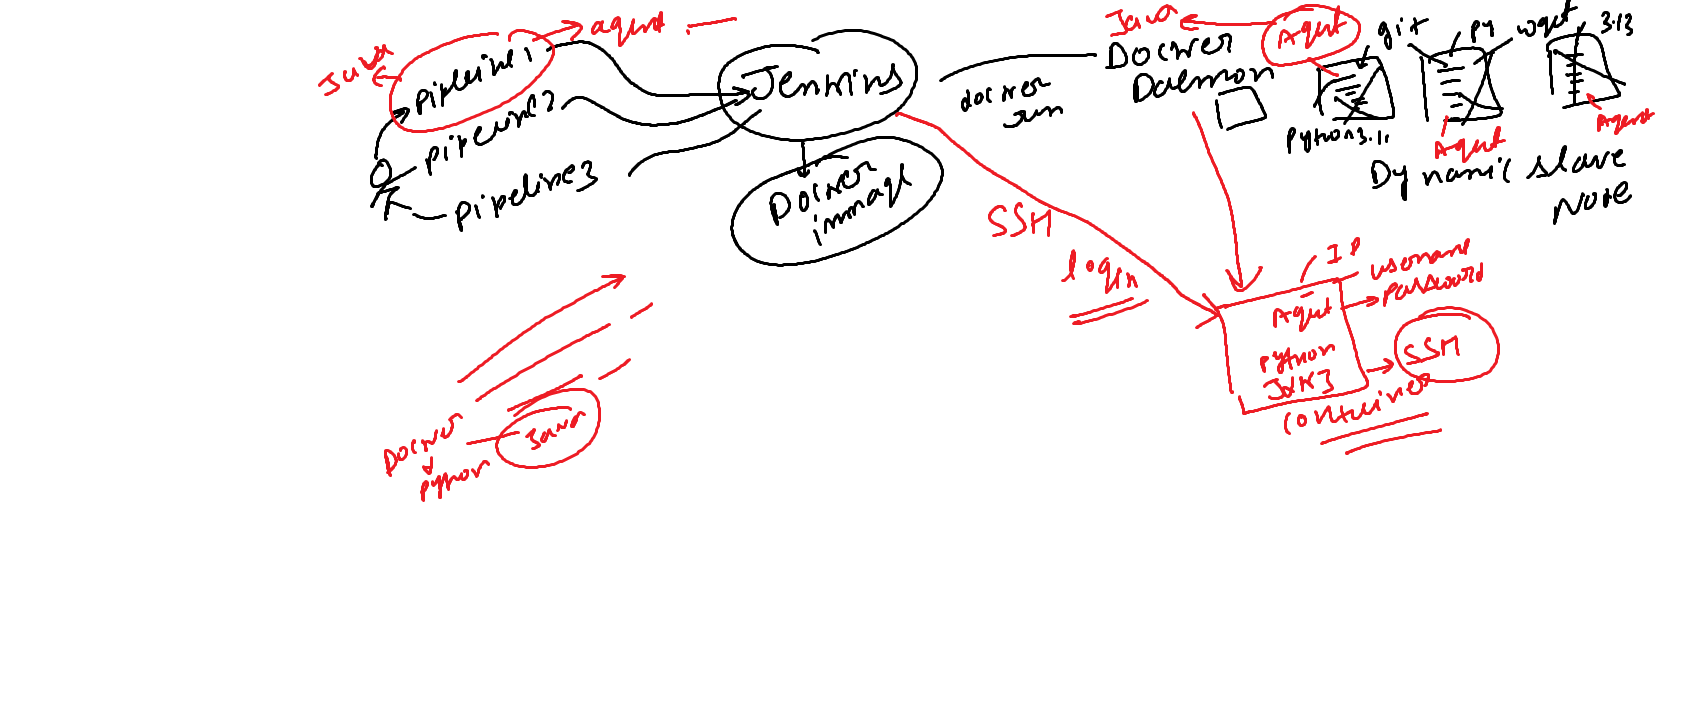 Java
agent
Pipeline1
Pipeline2
Pipeline3
Jenkins
Docker
image
docker
run
Java
Agent
Docker
Daemon
git
Py
wget
3.13
Python3.11
Agent
Agent
Dynamic slave
Node
SSH
login
IP
username
password
Agent
Python
JDK
SSH
container
Docker
Python
Java